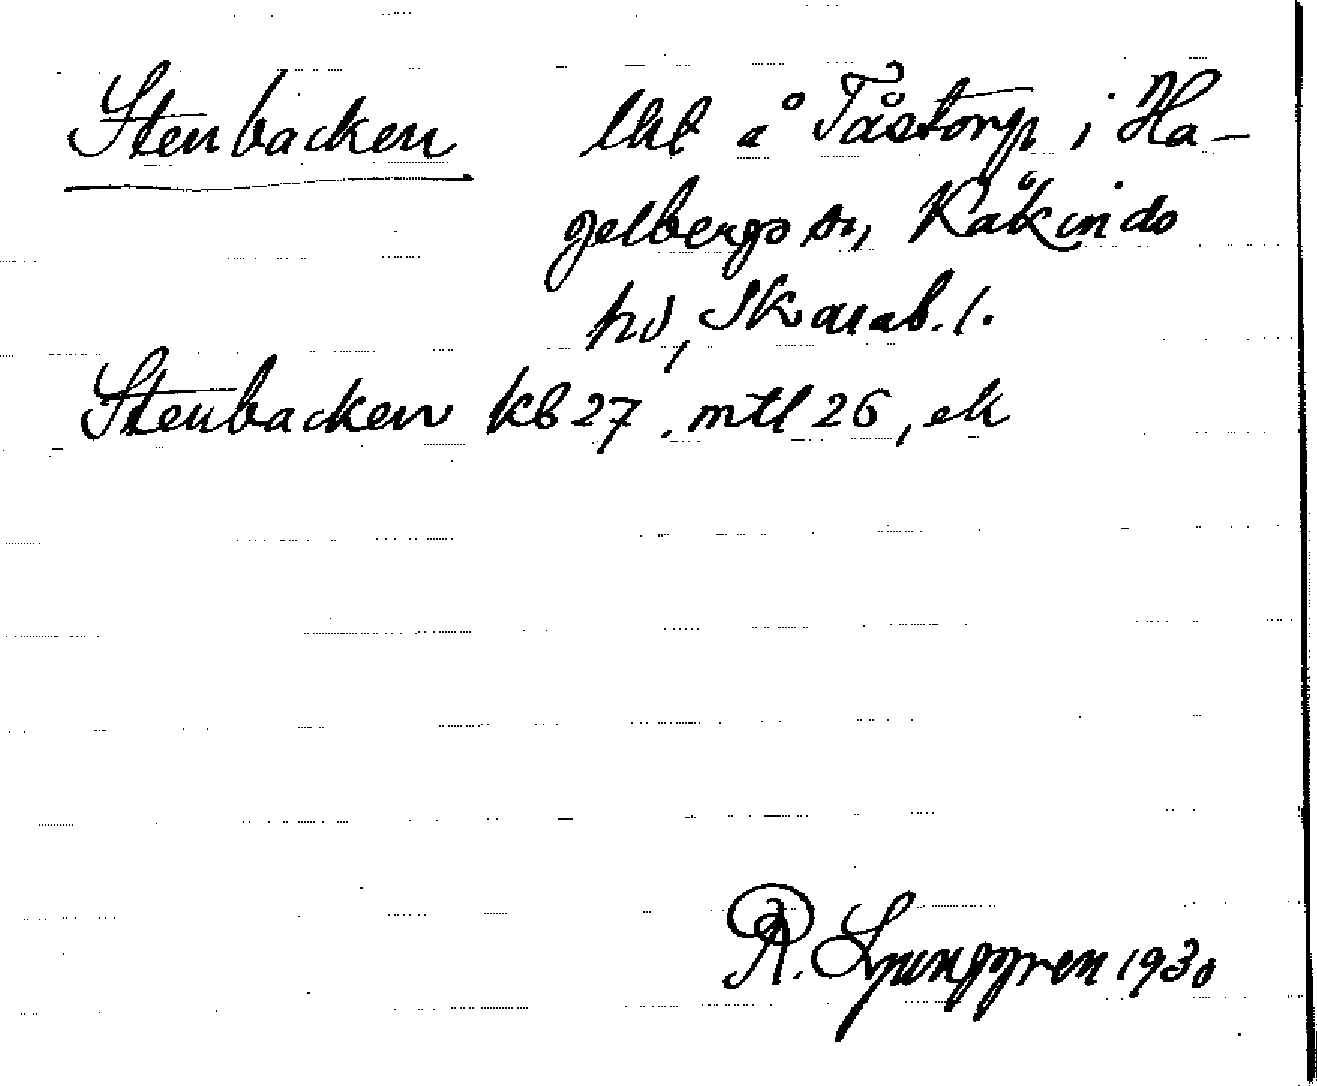 Stenbacken lht å Tåstorp i Ha-
gelbergs sn, Kåkinds
hd, Skarab. l.
Stenbacken kb 27, mtl 26, ek
R. Ljunggren 1930